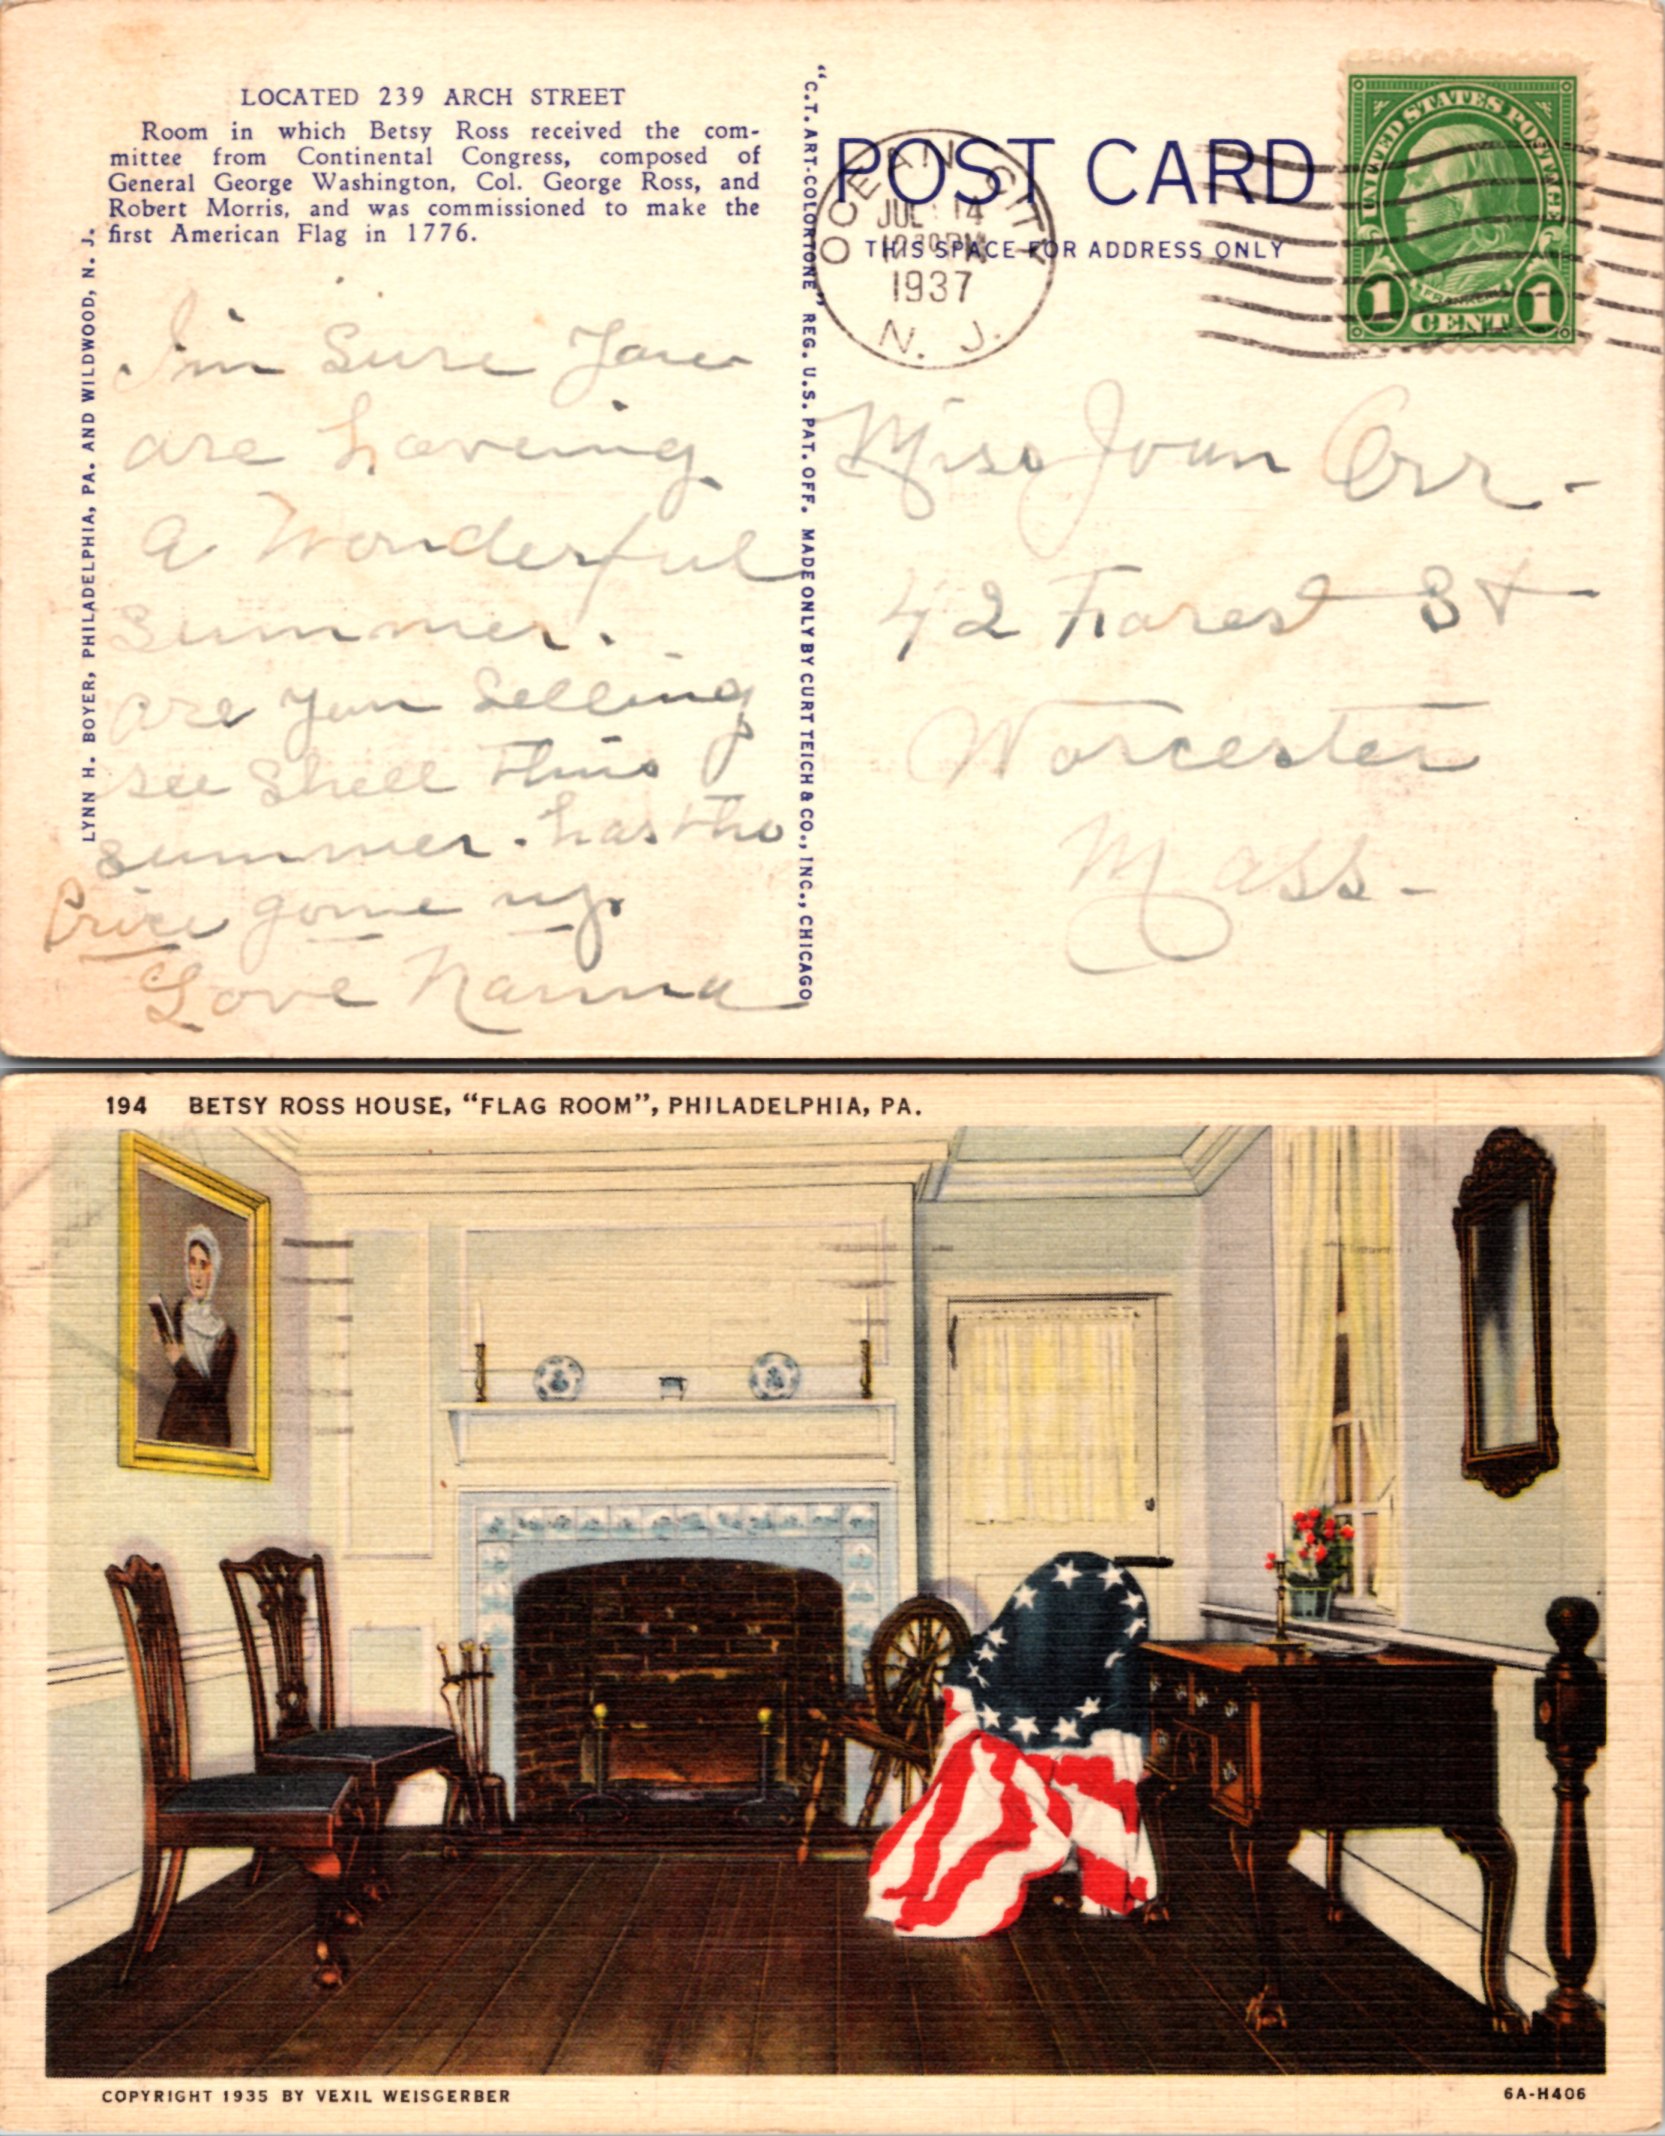 LOCATED 239 ARCH STREET
Room in which Betsy Ross received the com-
mittee from Continental Congress, composed of
General George Washington, Col. George Ross, and
Robert Morris, and was commissioned to make the
first American Flag in 1776.
LYNN H. BOYER, PHILADELPHIA, PA. AND WILDWOOD, N. J.
I'm Sure You
are haveing
a wonderful
summer.
are you selling
see shell this
summer. has the
Price gone up.
Love Nanna
"C.T. ART-COLORTONE" REG. U.S. PAT. OFF. MADE ONLY BY CURT TEICH & CO., INC., CHICAGO
POST CARD
THIS SPACE FOR ADDRESS ONLY
OCEAN CITY
JUL 14
1937
N. J.
UNITED STATES POSTAGE
FRANKLIN
1 CENT 1
Miss Joan Orr -
42 Forest St
Worcester
Mass -
194 BETSY ROSS HOUSE, "FLAG ROOM", PHILADELPHIA, PA.
COPYRIGHT 1935 BY VEXIL WEISGERBER
6A-H406